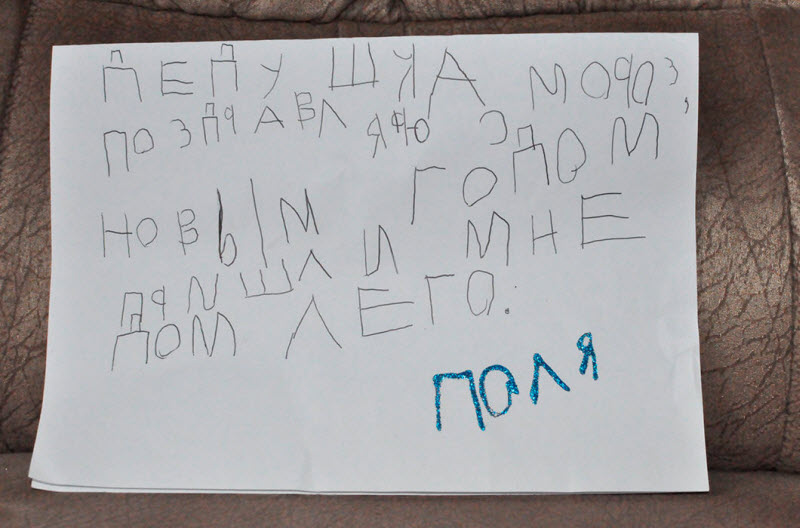 ДЕДУШКА МОРОЗ,
ПОЗДРАВЛЯЮ З
НОВЫМ ГОДОМ
ПРИШЛИ МНЕ
ДОМ ЛЕГО.
ПОЛЯ